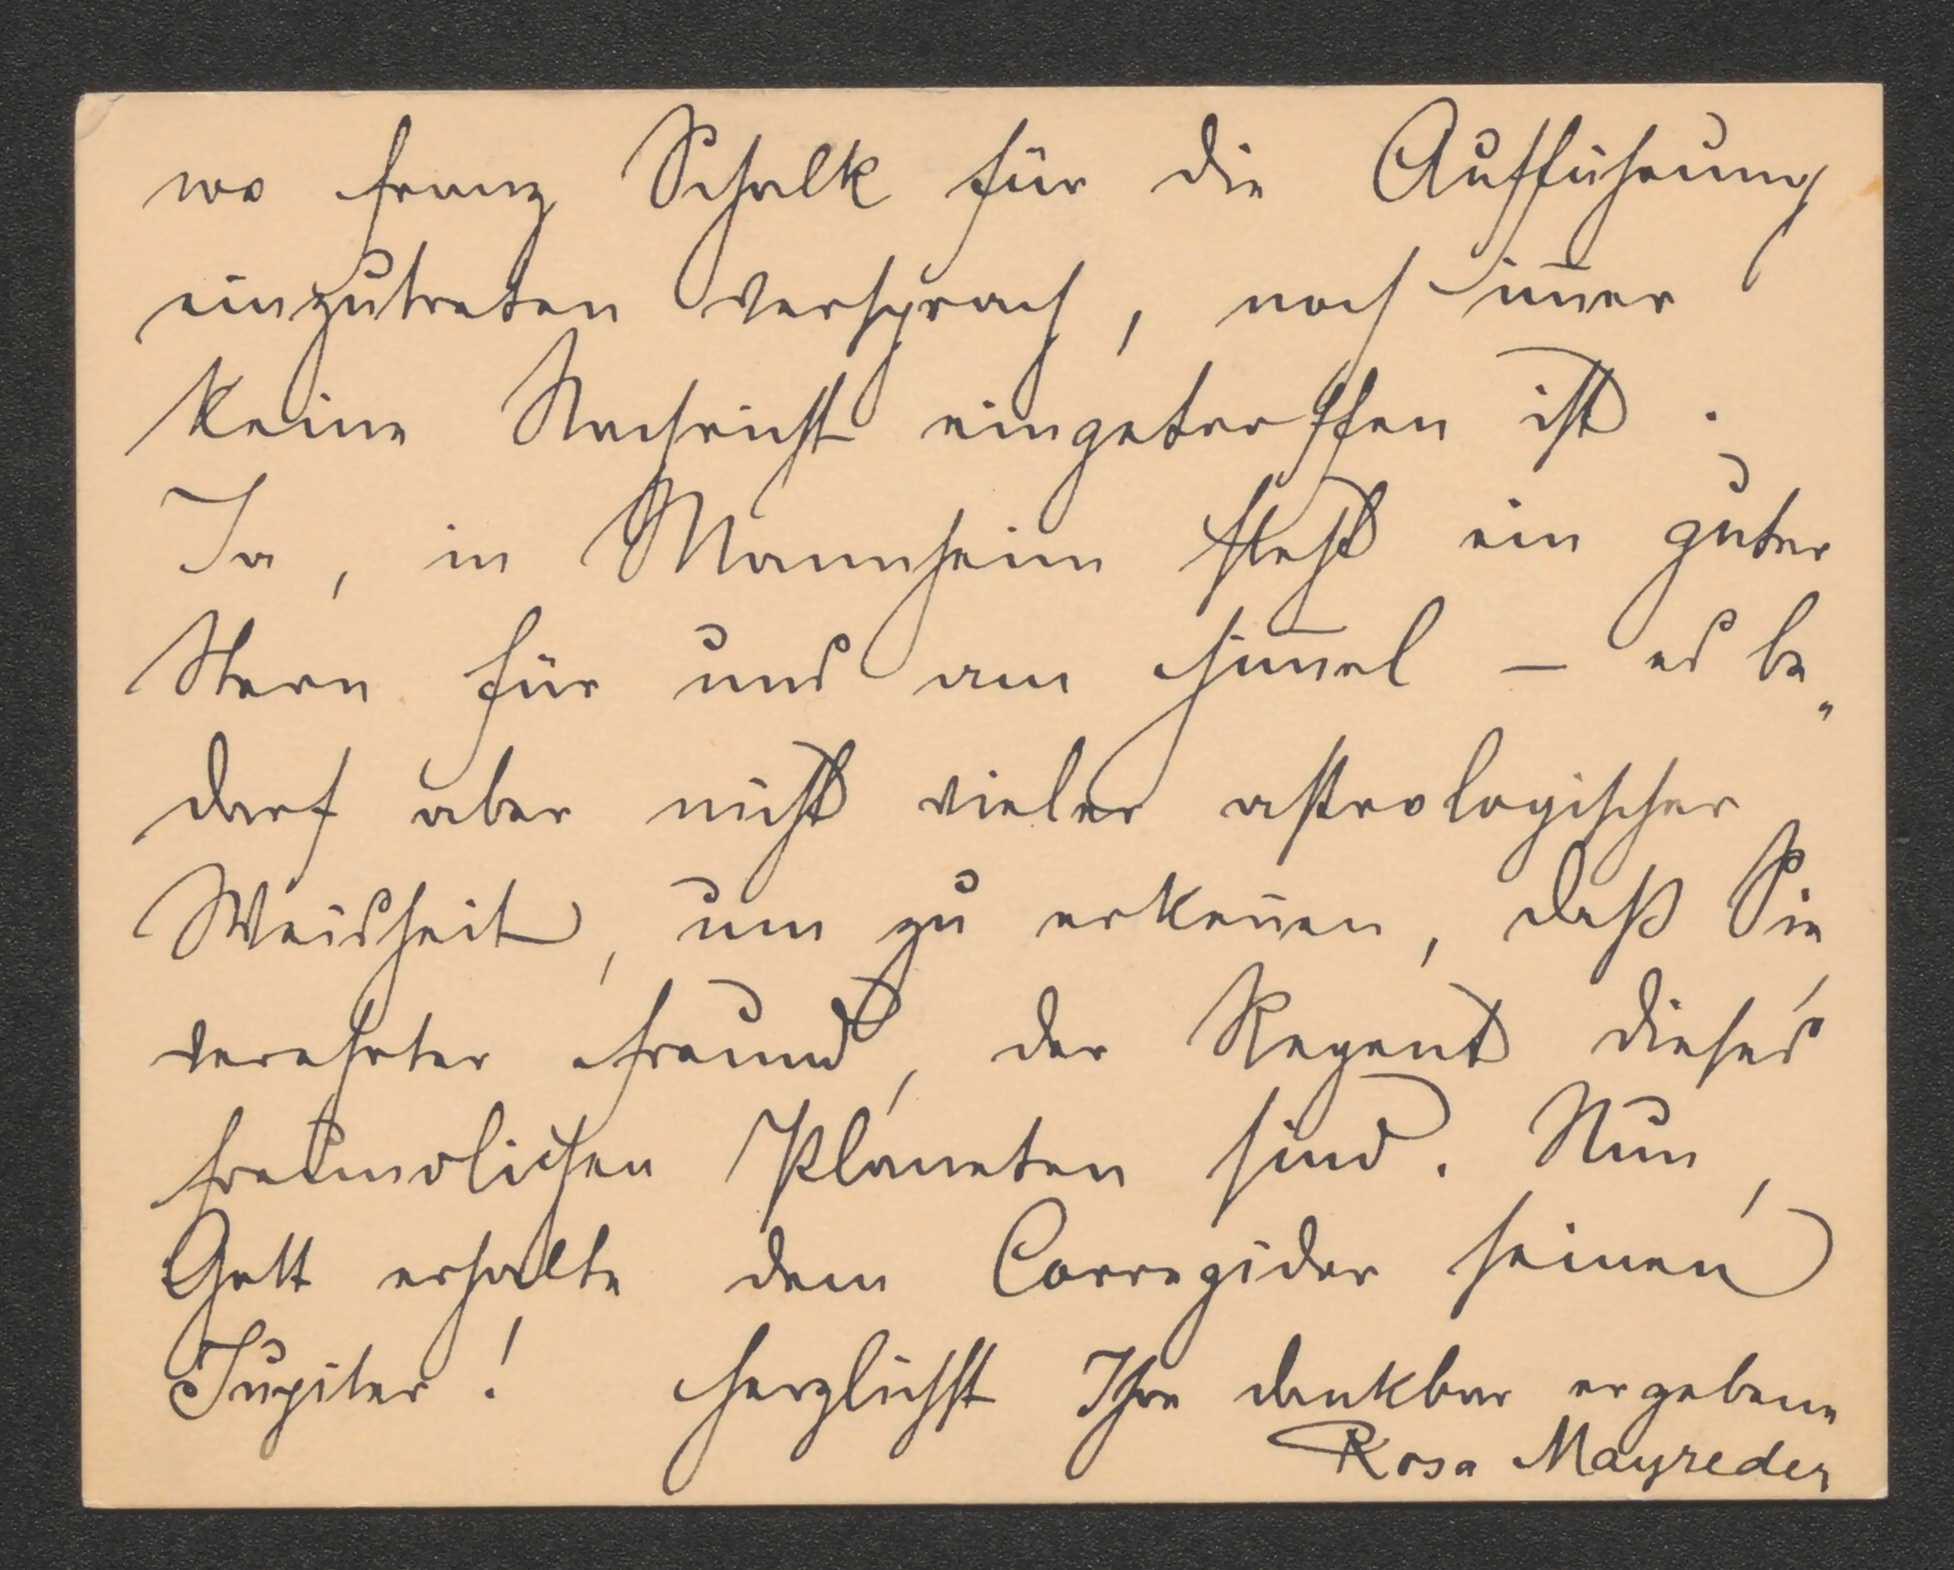 wo Franz Schalk für die Aufführung
einzutreten versprach, noch im̄er
keine Nachricht eingetroffen ist.
Ja, in Mannheim steht ein guter
Stern für uns am Him̄el – es be„
darf aber nicht vieler astrologischer
Weisheit, um zu erken̄en, daß Sie,
verehrter Freund, der Regent dieses
freundlichen Planeten sind. Nun,
Gott erhalte dem Corregidor seinen
Jupiter! Herzlichst Ihre dankbar ergebene
Rosa Mayreder